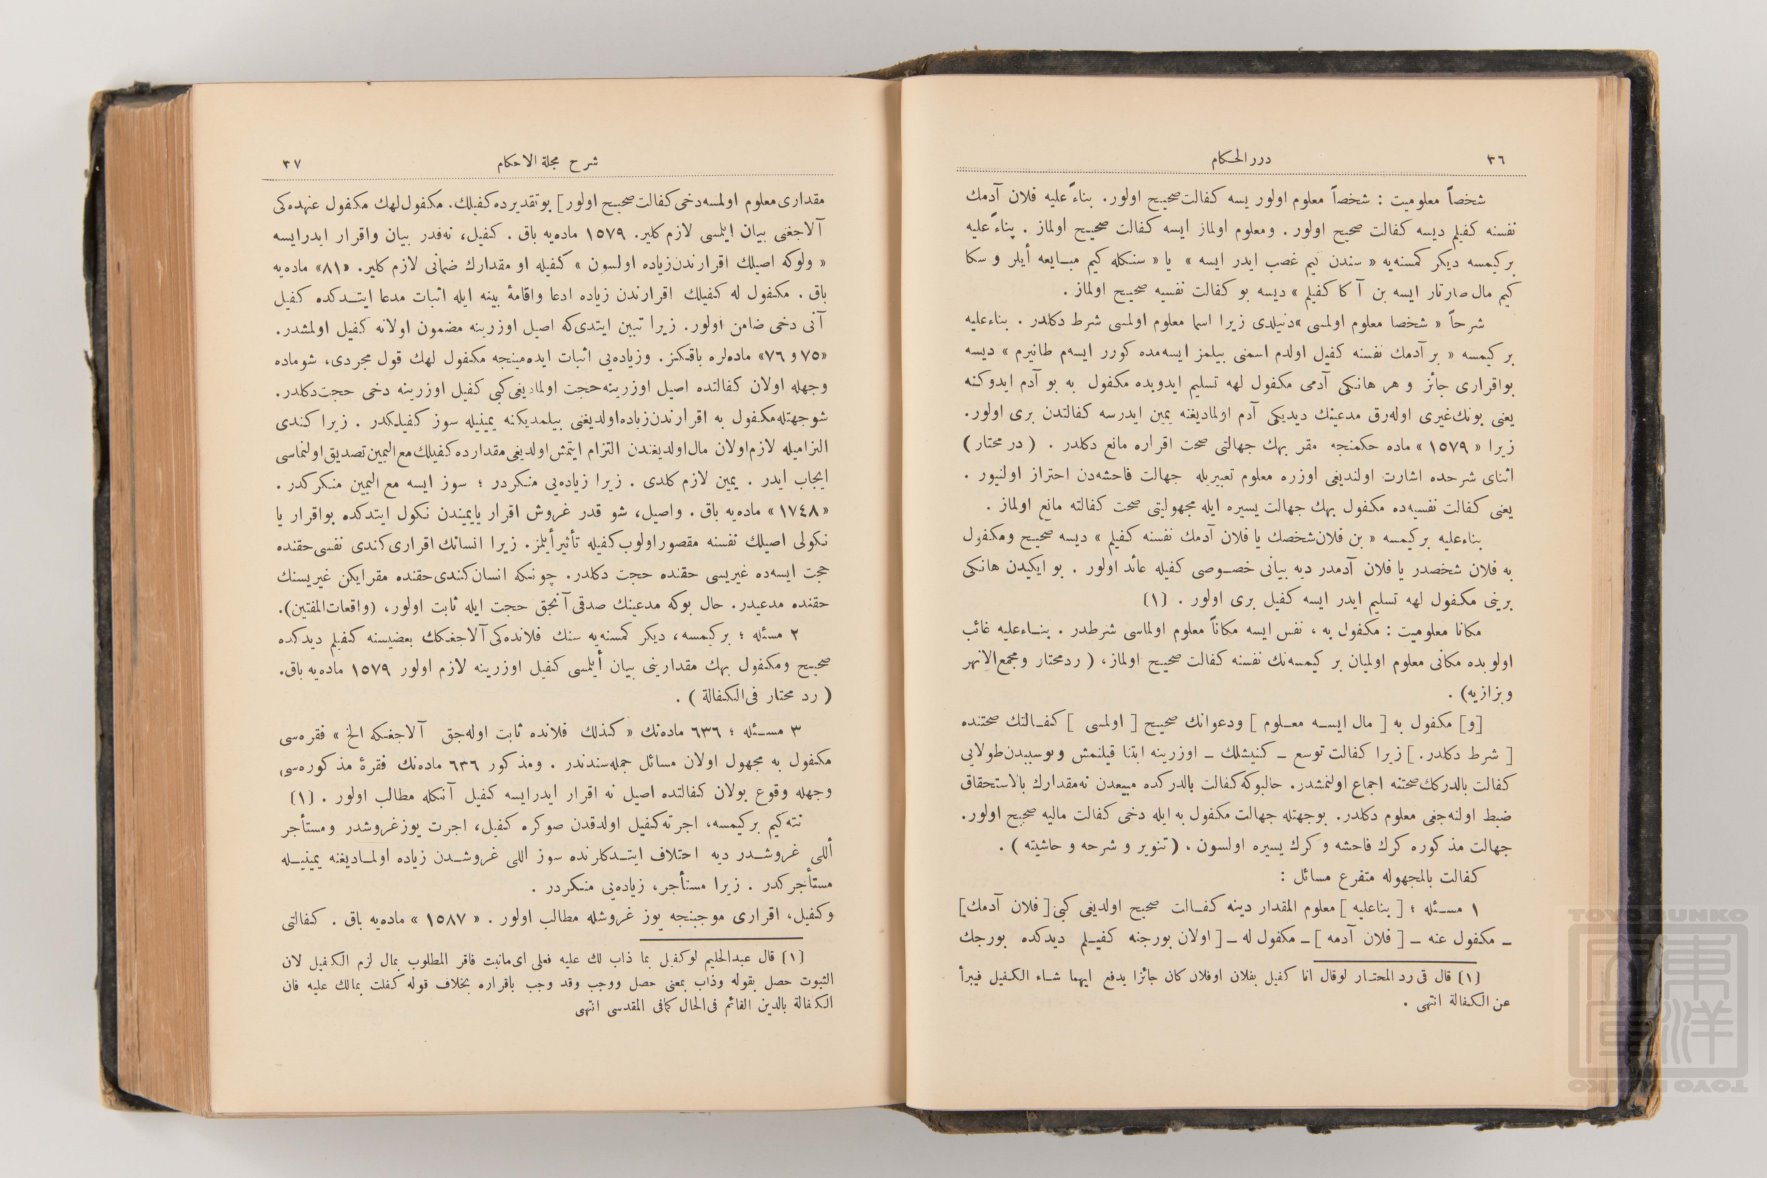 ٣٦
درر الحكام
شخصاً معلوميت : شخصاً معلوم اولور يسه كفالت صحيح اولور. بناءً عليه فلان آدمك
نفسنه كفيلم ديسه كفالت صحيح اولور . ومعلوم اولماز ايسه كفالت صحيح اولماز . بناءً عليه
بر كيمسه ديكر كمسنه‌يه « سندن كيم غصب ايدر ايسه » يا « سنكله كيم مبايعه أيلر و سكا
كيم مال صارتار ايسه بن آكا كفيلم » ديسه بو كفالت نفسيه صحيح اولماز .
شرحاً « شخصا معلوم اولمسى » دنيلدى زيرا اسما معلوم اولمسى شرط دكلدر . بناءعليه
بر كيمسه « بر آدمك نفسنه كفيل اولدم اسمنى بيلمز ايسه‌مده كورر ايسه‌م طانيرم » ديسه
بواقرارى جائز و هر هانكى آدمى مكفول لهه تسليم ايدوبده مكفول به بو آدم ايدوكنه
يعنى بونك غيرى اوله‌رق مدعينك ديديكى آدم اولماديغنه يمين ايدرسه كفالتدن برى اولور.
زيرا « ١٥٧٩ » ماده حكمنجه مقر بهك جهالتى صحت اقراره مانع دكلدر . ( در مختار )
اثناى شرحده اشارت اولنديغى اوزره معلوم تعبيريله جهالت فاحشه‌دن احتراز اولنيور .
يعنى كفالت نفسيه‌ده مكفول بهك جهالت يسيره ايله مجهوليتى صحت كفالته مانع اولماز .
بناءعليه بر كيمسه « بن فلان شخصك يا فلان آدمك نفسنه كفيلم » ديسه صحيح ومكفول
به فلان شخصدر يا فلان آدمدر ديه بيانى خصوصى كفيله عائد اولور . بو ايكيدن هانكى
برينى مكفول لهه تسليم ايدر ايسه كفيل برى اولور . (١)
مكانا معلوميت : مكفول به ، نفس ايسه مكاناً معلوم اولماسى شرطدر . بناءعليه غائب
اولوبده مكانى معلوم اولميان بر كيمسه‌نك نفسنه كفالت صحيح اولماز، ( ردمختار ومجمع الانهر
وبزازيه) .
[و] مكفول به [ مال ايسه معلوم ] ودعوانك صحيح [ اولمسى ] كفالتك صحتنده
[ شرط دكلدر. ] زيرا كفالت توسع ـ كنيشلك ـ اوزرينه ابتنا قيلنمش وبوسببدن طولايى
كفالت بالدركك صحتنه اجماع اولنمشدر. حالبوكه كفالت بالدركده مبيعدن نه مقدارك بالاستحقاق
ضبط اولنه‌جغى معلوم دكلدر. بوجهتله جهالت مكفول به ايله دخى كفالت ماليه صحيح اولور.
جهالت مذكوره كرك فاحشه وكرك يسيره اولسون ، ( تنوير و شرحه و حاشيته ) .
كفالت بالمجهوله متفرع مسائل :
١ مسئله ؛ [ بناعليه ] معلوم المقدار دينه كفالت صحيح اولديغى كبى [ فلان آدمك]
ـ مكفول عنه ـ [ فلان آدمه ] ـ مكفول له ـ [ اولان بورجنه كفيلم ديدكده بورجك
(١) قال فى رد المحتار لوقال انا كفيل بفلان اوفلان كان جائزا يدفع ايهما شاء الكفيل فيبرأ
عن الكفالة انتهى .
شرح مجلة الاحكام
٣٧
مقدارى معلوم اولمسه دخى كفالت صحيح اولور] بوتقديرده كفيلك. مكفول لهك مكفول عنهده كى
آلاجغنى بيان ايلمسى لازم كلير. ١٥٧٩ ماده‌يه باق . كفيل، نه‌قدر بيان واقرار ايدرايسه
« ولوكه اصيلك اقرارندن زياده اولسون » كفيله او مقدارك ضمانى لازم كلير. «٨١» ماده‌يه
باق . مكفول له كفيلك اقرارندن زياده ادعا واقامهٔ بينه ايله اثبات مدعا ايتدكده كفيل
آنى دخى ضامن اولور. زيرا تبين ايتدى كه اصيل اوزرينه مضمون اولانه كفيل اولمشدر.
«٧٥ و ٧٦» ماده‌لره باقكز. وزياده‌يى اثبات ايده‌مينجه مكفول لهك قول مجردى، شوماده
وجهله اولان كفالتده اصيل اوزرينه حجت اولماديغى كبى كفيل اوزرينه دخى حجت دكلدر.
شوجهتله مكفول به اقرارندن زياده اولديغنى بيلمديكنه يمينيله سوز كفيلكدر . زيرا كندى
التزاميله لازم اولان مال اولديغندن التزام ايتمش اولديغى مقدارده كفيلك مع اليمين تصديق اولنماسى
ايجاب ايدر . يمين لازم كلدى . زيرا زياده‌يى منكردر ؛ سوز ايسه مع اليمين منكركدر .
« ١٧٤٨ » ماده‌يه باق . واصيل، شو قدر غروش اقرار يايميندن نكول ايتدكده بواقرار يا
نكولى اصيلك نفسنه مقصور اولوب كفيله تأثير أيلمز. زيرا انسانك اقرارى كندى نفسى حقنده
حجت ايسه‌ده غيريسى حقنده حجت دكلدر. چونكه انسان كندى حقنده مقر ايكن غيريسنك
حقنده مدعيدر. حال بوكه مدعينك صدقى آنجق حجت ايله ثابت اولور، (واقعات المفتين).
٢ مسئله ؛ بركيمسه، ديكر كمسنه‌يه سنك فلانده كى آلاجغكك بعضيسنه كفيلم ديدكده
صحيح ومكفول بهك مقدارينى بيان أيلمسى كفيل اوزرينه لازم اولور ١٥٧٩ ماده‌يه باق.
( رد مختار فى الكفالة ) .
٣ مسئله ؛ ٦٣٦ ماده‌نك « كذلك فلانده ثابت اوله‌جق آلاجغكه الخ » فقره‌سى
مكفول به مجهول اولان مسائل جمله‌سندندر . ومذكور ٦٣٦ ماده‌نك فقرهٔ مذكوره‌سى
وجهله وقوع بولان كفالتده اصيل نه اقرار ايدرايسه كفيل آنكله مطالب اولور . (١)
نته‌كيم بركيمسه، اجرته كفيل اولدقدن صوكره كفيل، اجرت يوز غروشدر ومستأجر
أللى غروشدر ديه اختلاف ايتدكلرنده سوز اللى غروشدن زياده اولماديغنه يمينيله
مستأجركدر . زيرا مستأجر، زياده‌يى منكردر .
وكفيل، اقرارى موجبنجه يوز غروشله مطالب اولور . « ١٥٨٧ » ماده‌يه باق . كفالتى
(١) قال عبدالحليم لوكفيل بما ذاب لك عليه فعلى اى مانبت فاقر المطلوب بمال لزم الكفيل لان
الثبوت حصل بقوله وذاب بمعنى حصل ووجب وقد وجب باقراره بخلاف قوله كفلت بمالك عليه فان
الكفالة بالدين القائم فى الحال كمافى المقدسى انتهى
TOYO BUNKO
東洋文庫
TOYO BUNKO